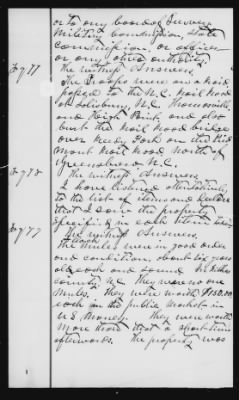 or to any board of survey
military commission, state
commission or officer
or any other authority.
Inty 77 The witness answers,
The troops were on a raid
to the N.C. Rail Road
at Salisbury, N.C. Thomasville,
and High Point, and also
burnt the Rail Road bridge
over Deep Fork on the Pied
mont Rail Road north of
Greensboro N.C.
Inty 78 The witness answers
I have listened attentively
to the list of items and declare
that I saw the property
specified in each item taken
Inty 79 The witness answers
The mules were in good order
and condition about six years
old each and sound in
county N.C. They were no one
mules. They were worth $150.00
each in the public market in
U.S. money. They were worth
more than that a short time
afterwards. The property was